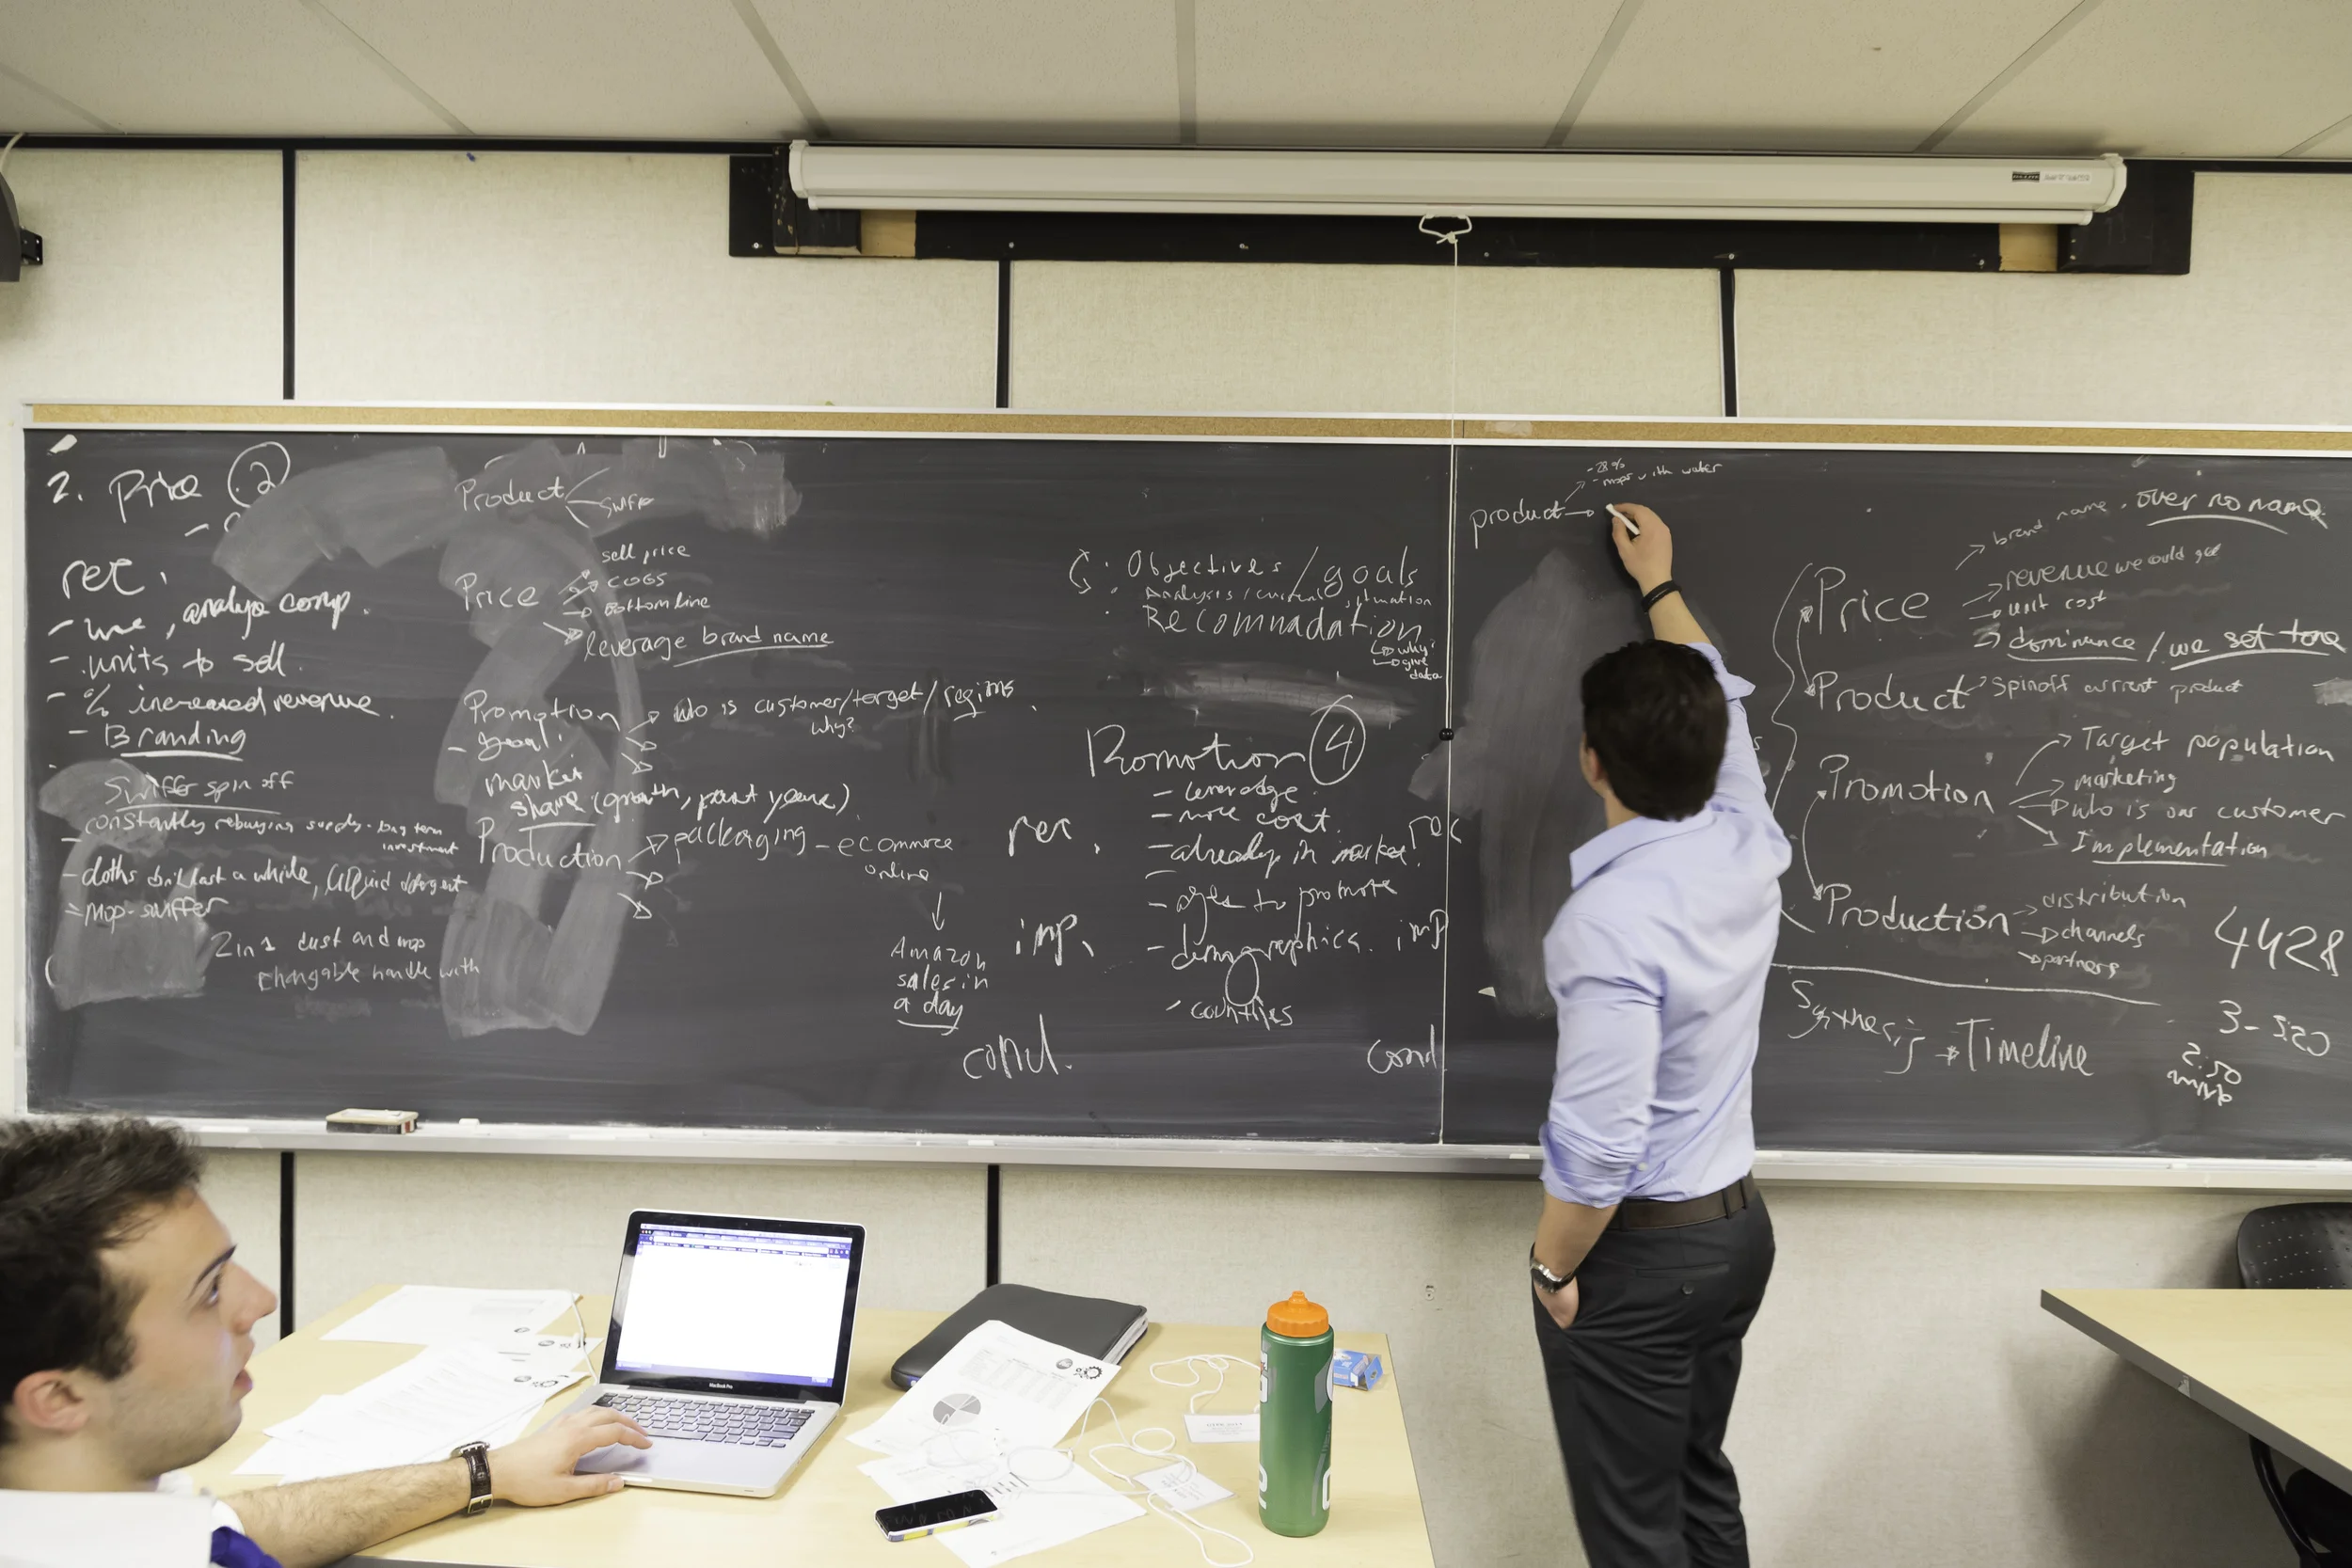 2. Price 2
rec.
- we, analyze comp.
- units to sell.
- % increased revenue.
- Branding
Swiffer spin off
- constantly rebuying supply - long term
investment
- cloths don't last a while, liquid detergent
= mop - swiffer
2 in 1 dust and mop
changable handle with
Product
Swiffer
Price
sell price
COGS
Bottom line
leverage brand name
Promotion
who is customer/target/regions
why?
- goal:
market
share (growth, past years)
Production
packaging - ecommerce
online
Amazon
sales in
a day
rec.
imp.
concl.
: Objectives/goals
Analysis/current situation
Recomnadation
why?
give
data
Promotion 4
- leverage
- more cost.
- already in market.
- ages to promote
- demographics.
- countries
rec
imp
concl
product
- 28%
- mops with water
Price
brand name. over no name
revenue we could get
unit cost
dominance / we set tone
Product
Spinoff current product
Promotion
Target population
marketing
who is our customer
Implementation
Production
distribution
channels
partners
Synthesis
Timeline
4428
3-
MacBook Pro